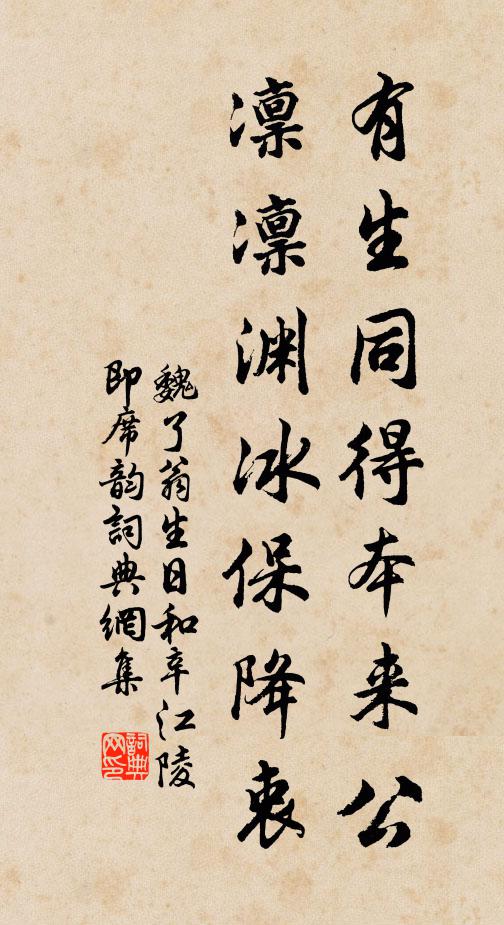 有生同得本来公
凛凛渊冰保降衷
魏了翁生日和辛江陵
即席韵詞典網集
詞典网印